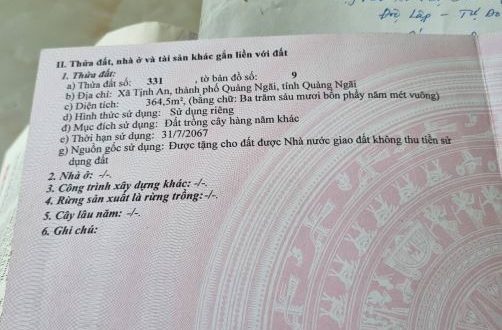 Độc Lập - Tự Do
II. Thửa đất, nhà ở và tài sản khác gắn liền với đất
1. Thửa đất:
a) Thửa đất số: 331 , tờ bản đồ số: 9
b) Địa chỉ: Xã Tịnh An, thành phố Quảng Ngãi, tỉnh Quảng Ngãi
c) Diện tích: 364,5m², (bằng chữ: Ba trăm sáu mươi bốn phẩy năm mét vuông)
d) Hình thức sử dụng: Sử dụng riêng
đ) Mục đích sử dụng: Đất trồng cây hàng năm khác
e) Thời hạn sử dụng: 31/7/2067
g) Nguồn gốc sử dụng: Được tặng cho đất được Nhà nước giao đất không thu tiền sử
dụng đất
2. Nhà ở: -/-.
3. Công trình xây dựng khác: -/-.
4. Rừng sản xuất là rừng trồng: -/-.
5. Cây lâu năm: -/-.
6. Ghi chú: